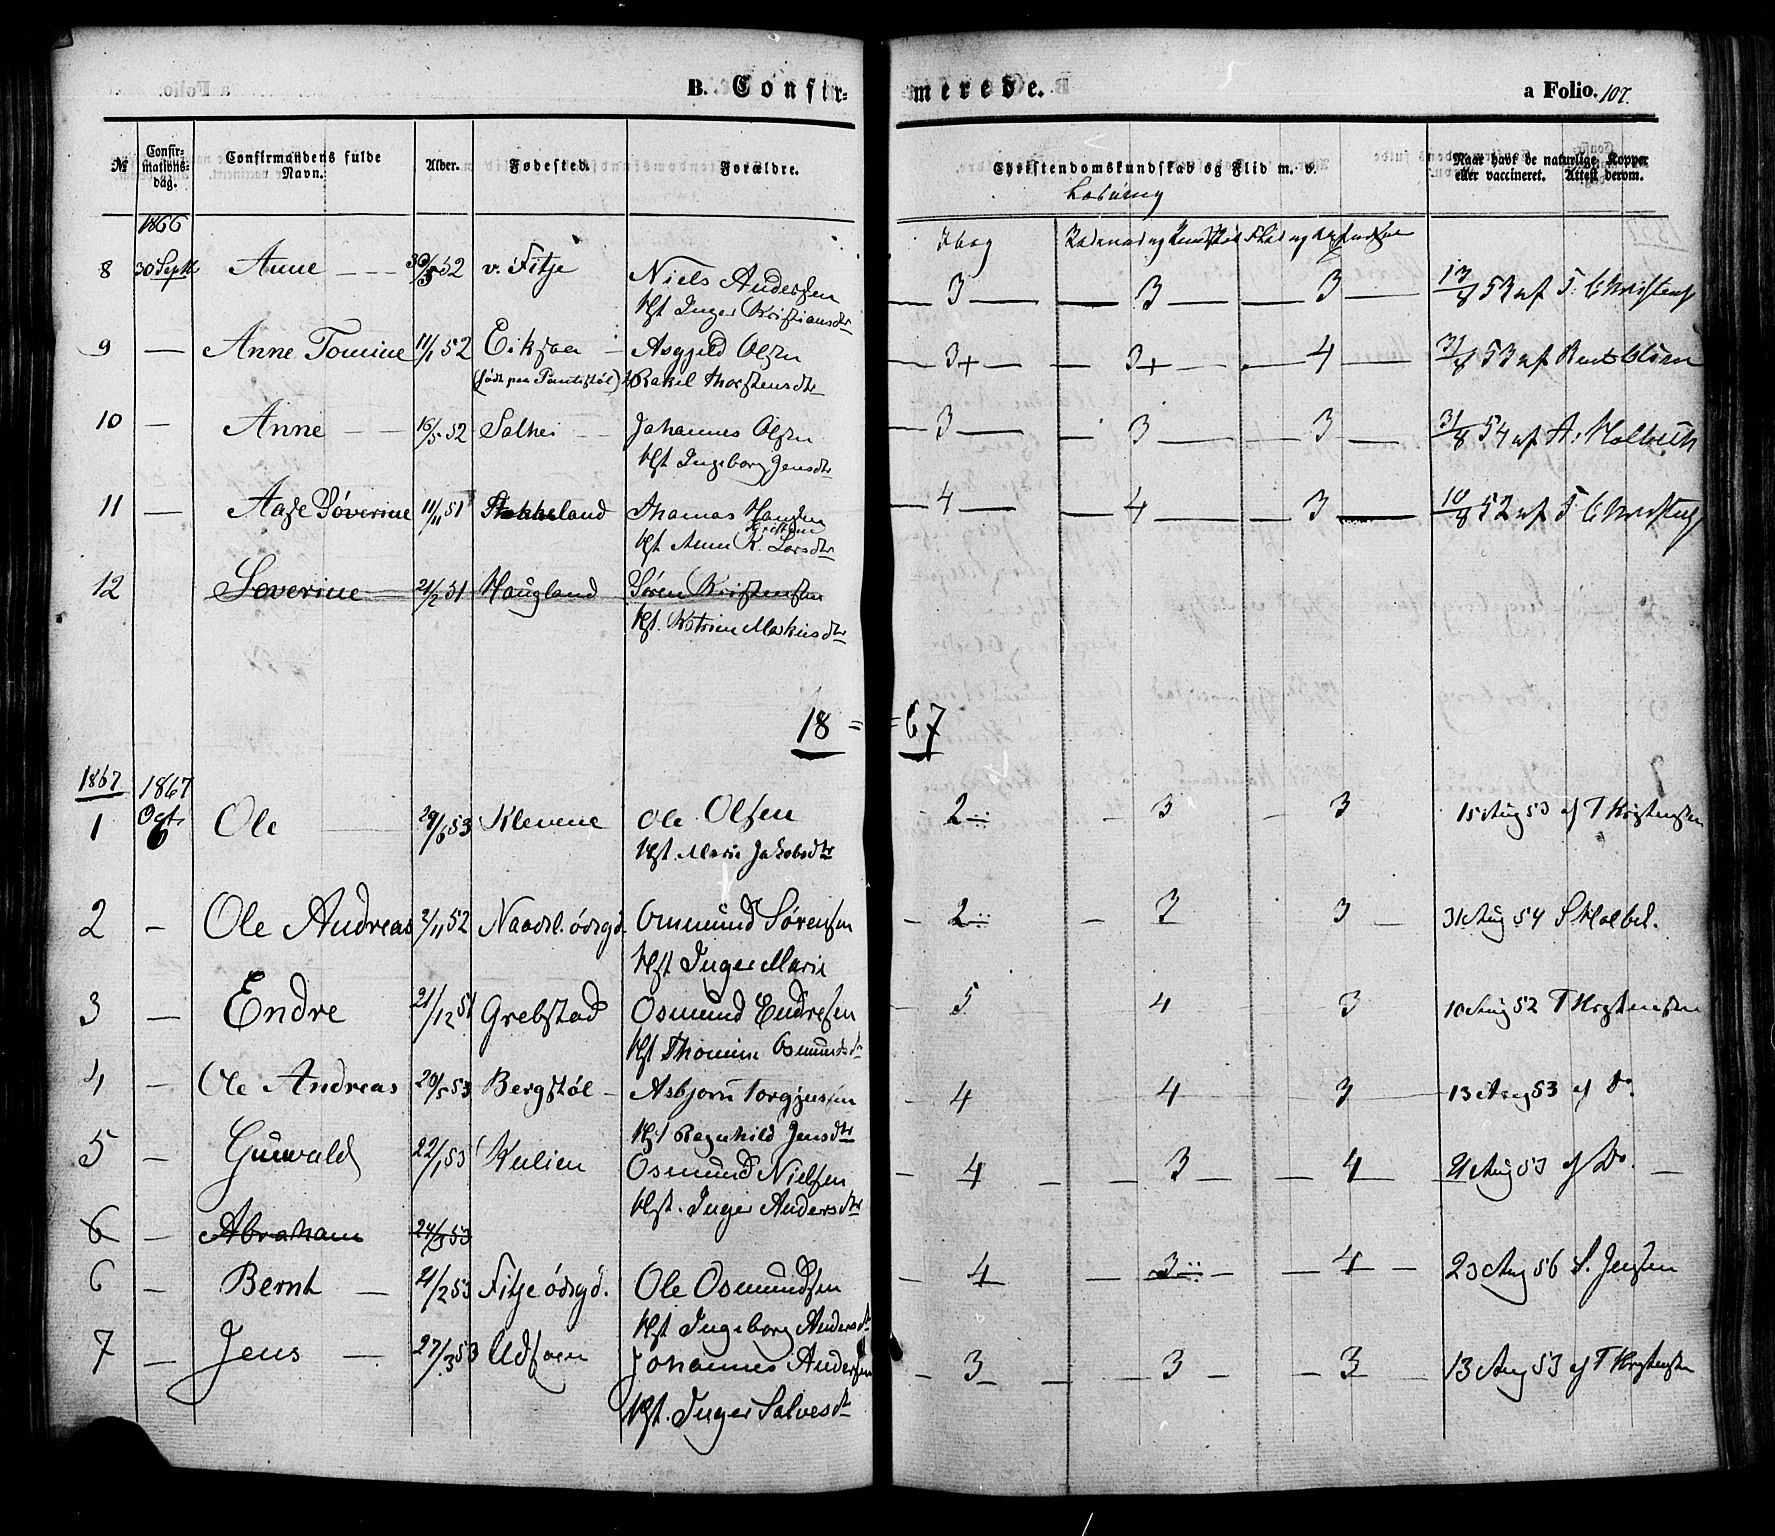 B. Confir- merede. a Folio. 107.
№ Confirmationsdag. Confirmandens fulde Navn. Alder. Fødested. Forældre. Christendomskundskab og Flid m. v. Naar havt de naturlige Kopper eller vaccineret. Attest derom.
1866
8 30 Septb Anne 30/3 52 v. Fitje Niels Andersen 3 3 3 13/8 53 af T. Christens
Hst Inger Kristiansdtr
9 — Anne Tomine 11/1 52 Eikjaen Asgjeld Olsen 3+ 3+ 4 31/8 53 af Bent Olsen
(født paa ) Rakel Thorstensdtr
10 — Anne 16/5 52 Salhei Johannes Olsen 3 3 3 31/8 54 af A.
Hst Ingeborg Jensdtr
11 — Aase Søverine 11/11 51 Stokkeland Thomas Hansen 4 4 3 10/8 52 af T Christens
Hst Anne K. Larsdtr
12 Severine 21/2 51 Haugland Søren Kristensen
Hst. Katrine Markusdtr
18 = = 67
1867 1867
1 Octr 6 Ole 29/6 53 Klevene Ole Olsen 2 3 3 15 Aug 53 af T Kristensen
Hst Marie Jakobsdtr
2 — Ole Andreas 2/11 52 Naadl. ødsgd. Osmund Sørensen 2 3 3 31 Aug 54 S Holbek.
Hst Inger Marie
3 — Endre 21/12 51 Grebstad Osmund Endresen 5 4 3 10 Aug 52 T Kristensen
Hst Thomine Osmundsdtr
4 — Ole Andreas 20/5 53 Bergstøl Asbjørn Torgjussen 4 4 3 13 Aug 53 af Do.
Hst Ragnhild Jensdtr
5 — Gunvald 22/1 53 Kulien Osmund Nielsen 4 3 4 21 Aug 53 af Do.
Hst. Inger Andersdtr
6 — Abraham 24/3 53
6 — Bernt 21/2 53 Fitje ødsgd. Ole Osmundsen 4 3 4 23 Aug 56 S. Jensen
Hst Ingeborg Andersdt
7 — Jens 27/3 53 Udjoen Johannes Andersen 3 3 3 13 Aug 53 af T Kristensen
Hst. Inger Salvesdt